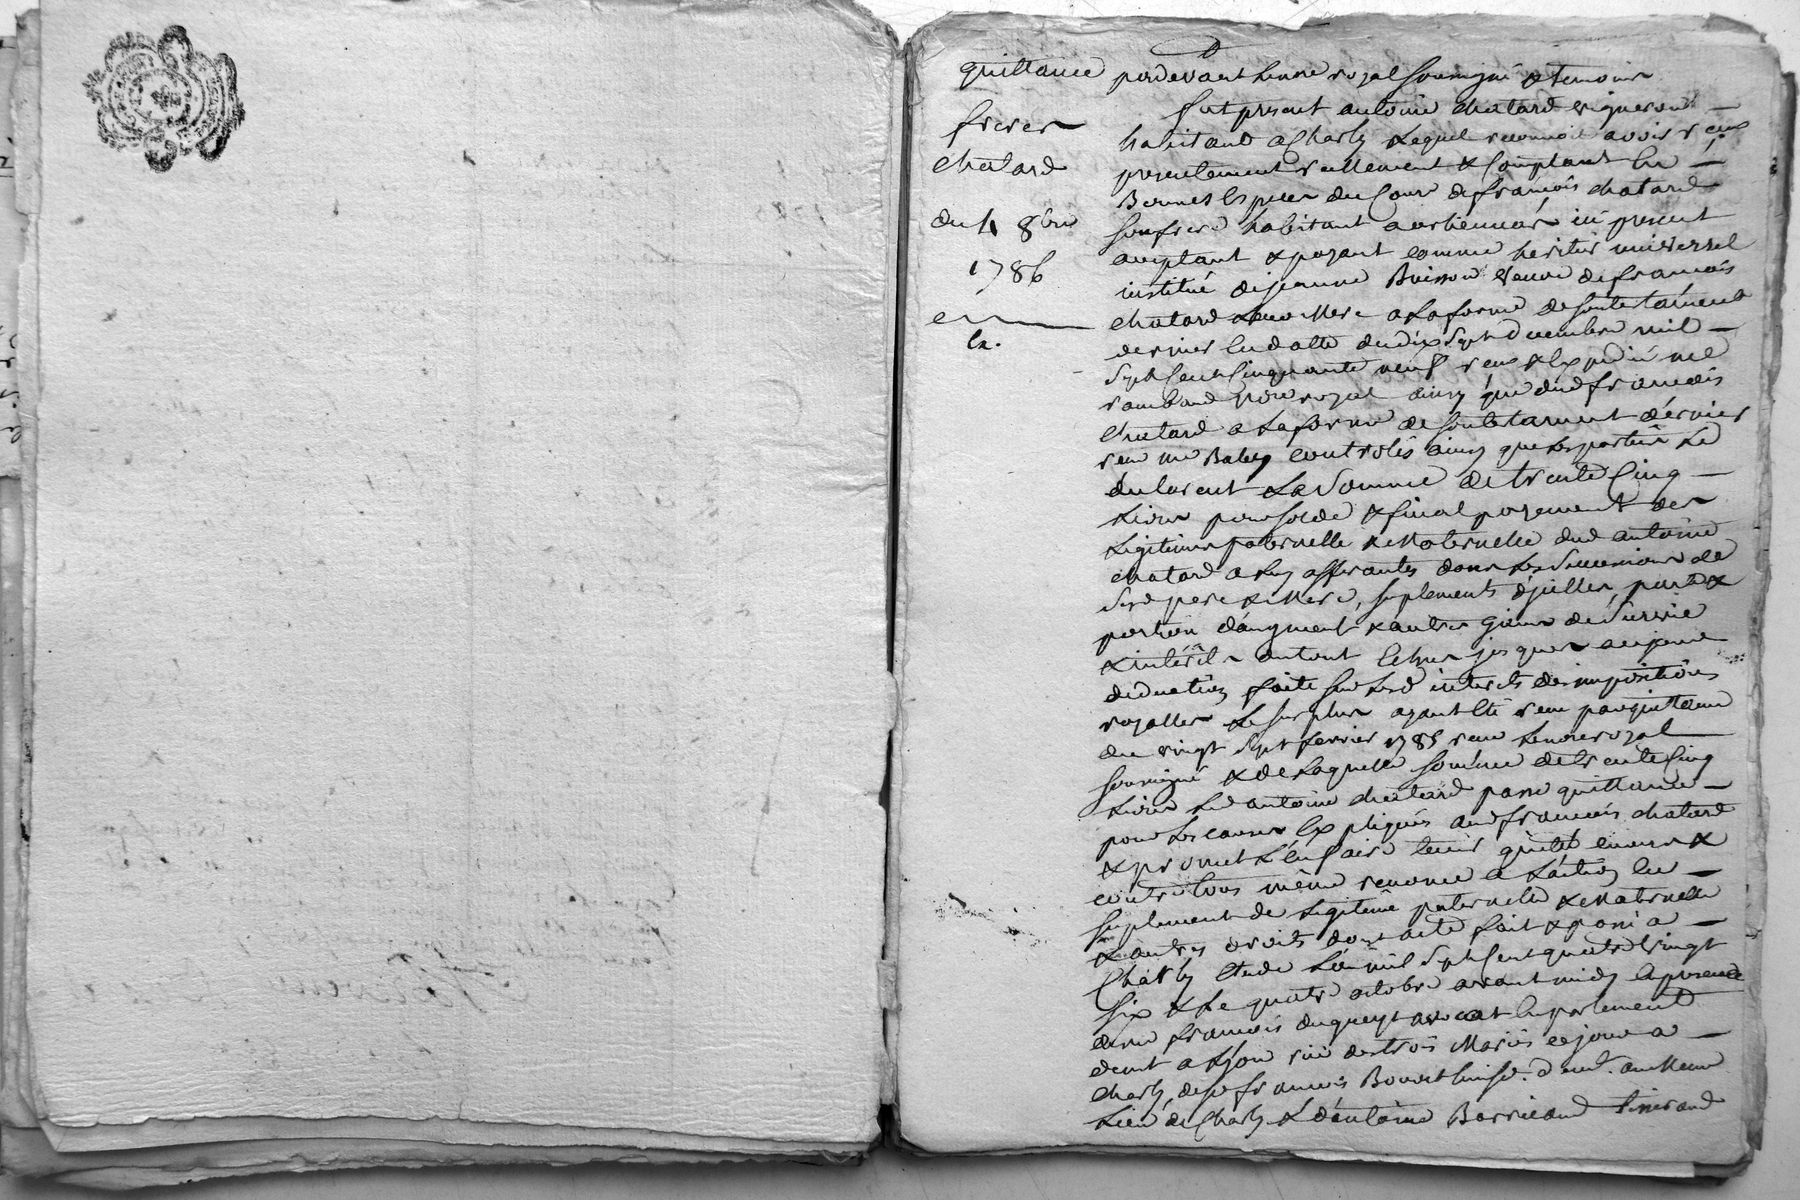 quittance
freres
chatard
du 4 8bre
1786
pardevant le nore royal soussigné & temoins
fut present antoine chatard vigneron
habitant a Charly lequel reconnoit avoir reçu
presentement reellement & comptant en
Bonnes especes du Cours de françois chatard
son frere habitant a orliennas ici present
acceptant & payant comme heritier universel
institué de jeanne Buisson veuve de françois
chatard leur Mere a la forme de son testament
dernier en datte du dix sept decembre mil
sept Cent Cinquante neuf reçu & Expedié me
rambaud nore royal ainsy que dud françois
chatard a la forme de son testament dernier
reçu me contrôlés ainsy que les parties le
declarent la Somme de trente Cinq
livres pour solde & final payement des
legitimes paternelle & Maternelle dud antoine
chatard a luy afferantes dans les Successions de
Sesd pere & Mere, suplements d'jcelles, part &
portion d'augment & autres gains de Survie
& intérêts du tout Echus jusques a ce jour
deduction faite sur lesd interets des impositions
royalles le surplus ayant été reçu par quittance
du vingt Sept fevrier 1785 reçu le nore royal
soussigné & de laquelle somme de trente Cinq
livres led antoine chatard passe quittance
pour les causes Expliquées aud françois chatard
& promet l'en faire tenir quitte envers &
contre tous même renonce a l'action en
suplement de legitime paternelle & Maternelle
& autres droits dont acte fait & passé a
Charly Etude l'an mil Sept Cent quatre vingt
six & le quatre octobre avant midy En presence
de me françois dugueyt avocat En parlement
demt a lyon rue des trois Maries ce jour a
Charly, de sr françois Bonnet demt. au Meme
Lieu de Charly & d'antoine Barricand tisserand